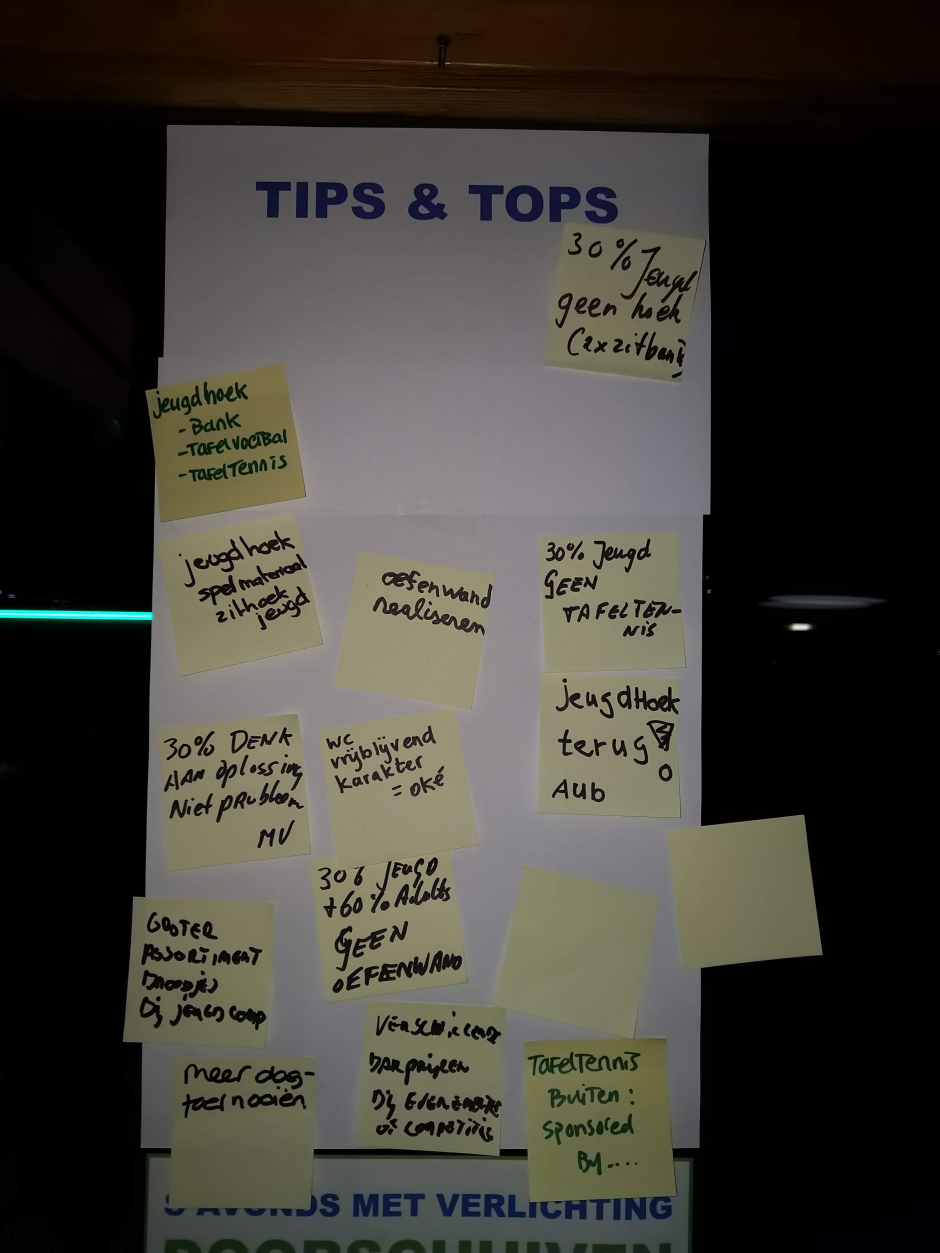 TIPS & TOPS
30% Jeugd
geen hoek
(2x zitbank)
jeugdhoek
- Bank
- TafelvoetBal
- TafelTennis
jeugdhoek
spelmateriaal
zithoek
jeugd
oefenwand
realiseren
30% Jeugd
GEEN
TAFELTEN-
NIS
30% DENK
AAN oplossing
Niet probleem
MV
wc
vrijblijvend
karakter
= oké
jeugdHoek
terug!
AUB
GROTER
ASSORTIMENT
BROODJES
Bij jeugdcomp
JEUGD
+60% Adults
GEEN
OEFENWAND
meer dag-
toernooiën
VERSCHILLENDE
BARprijzen
Bij EVENEMENTEN
OF COMPETITIES
TafelTennis
Buiten:
Sponsored
By....
S AVONDS MET VERLICHTING
DOORSCHUIVEN